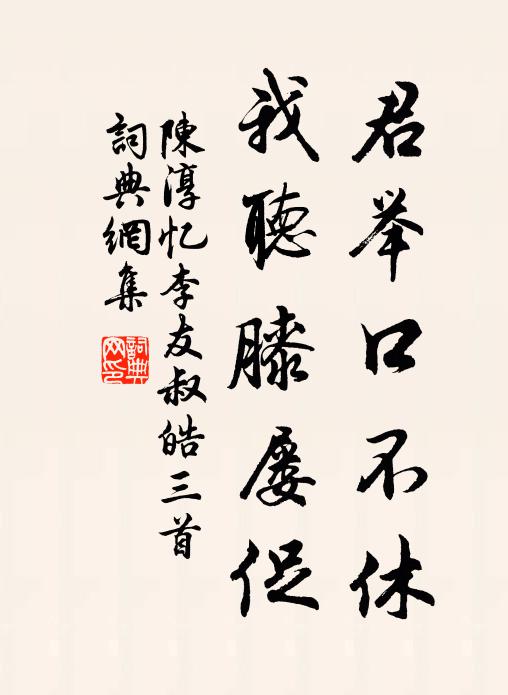 君举口不休
我聽膝屡促
陳淳忆李友叔皓三首
詞典網集
詞典网印